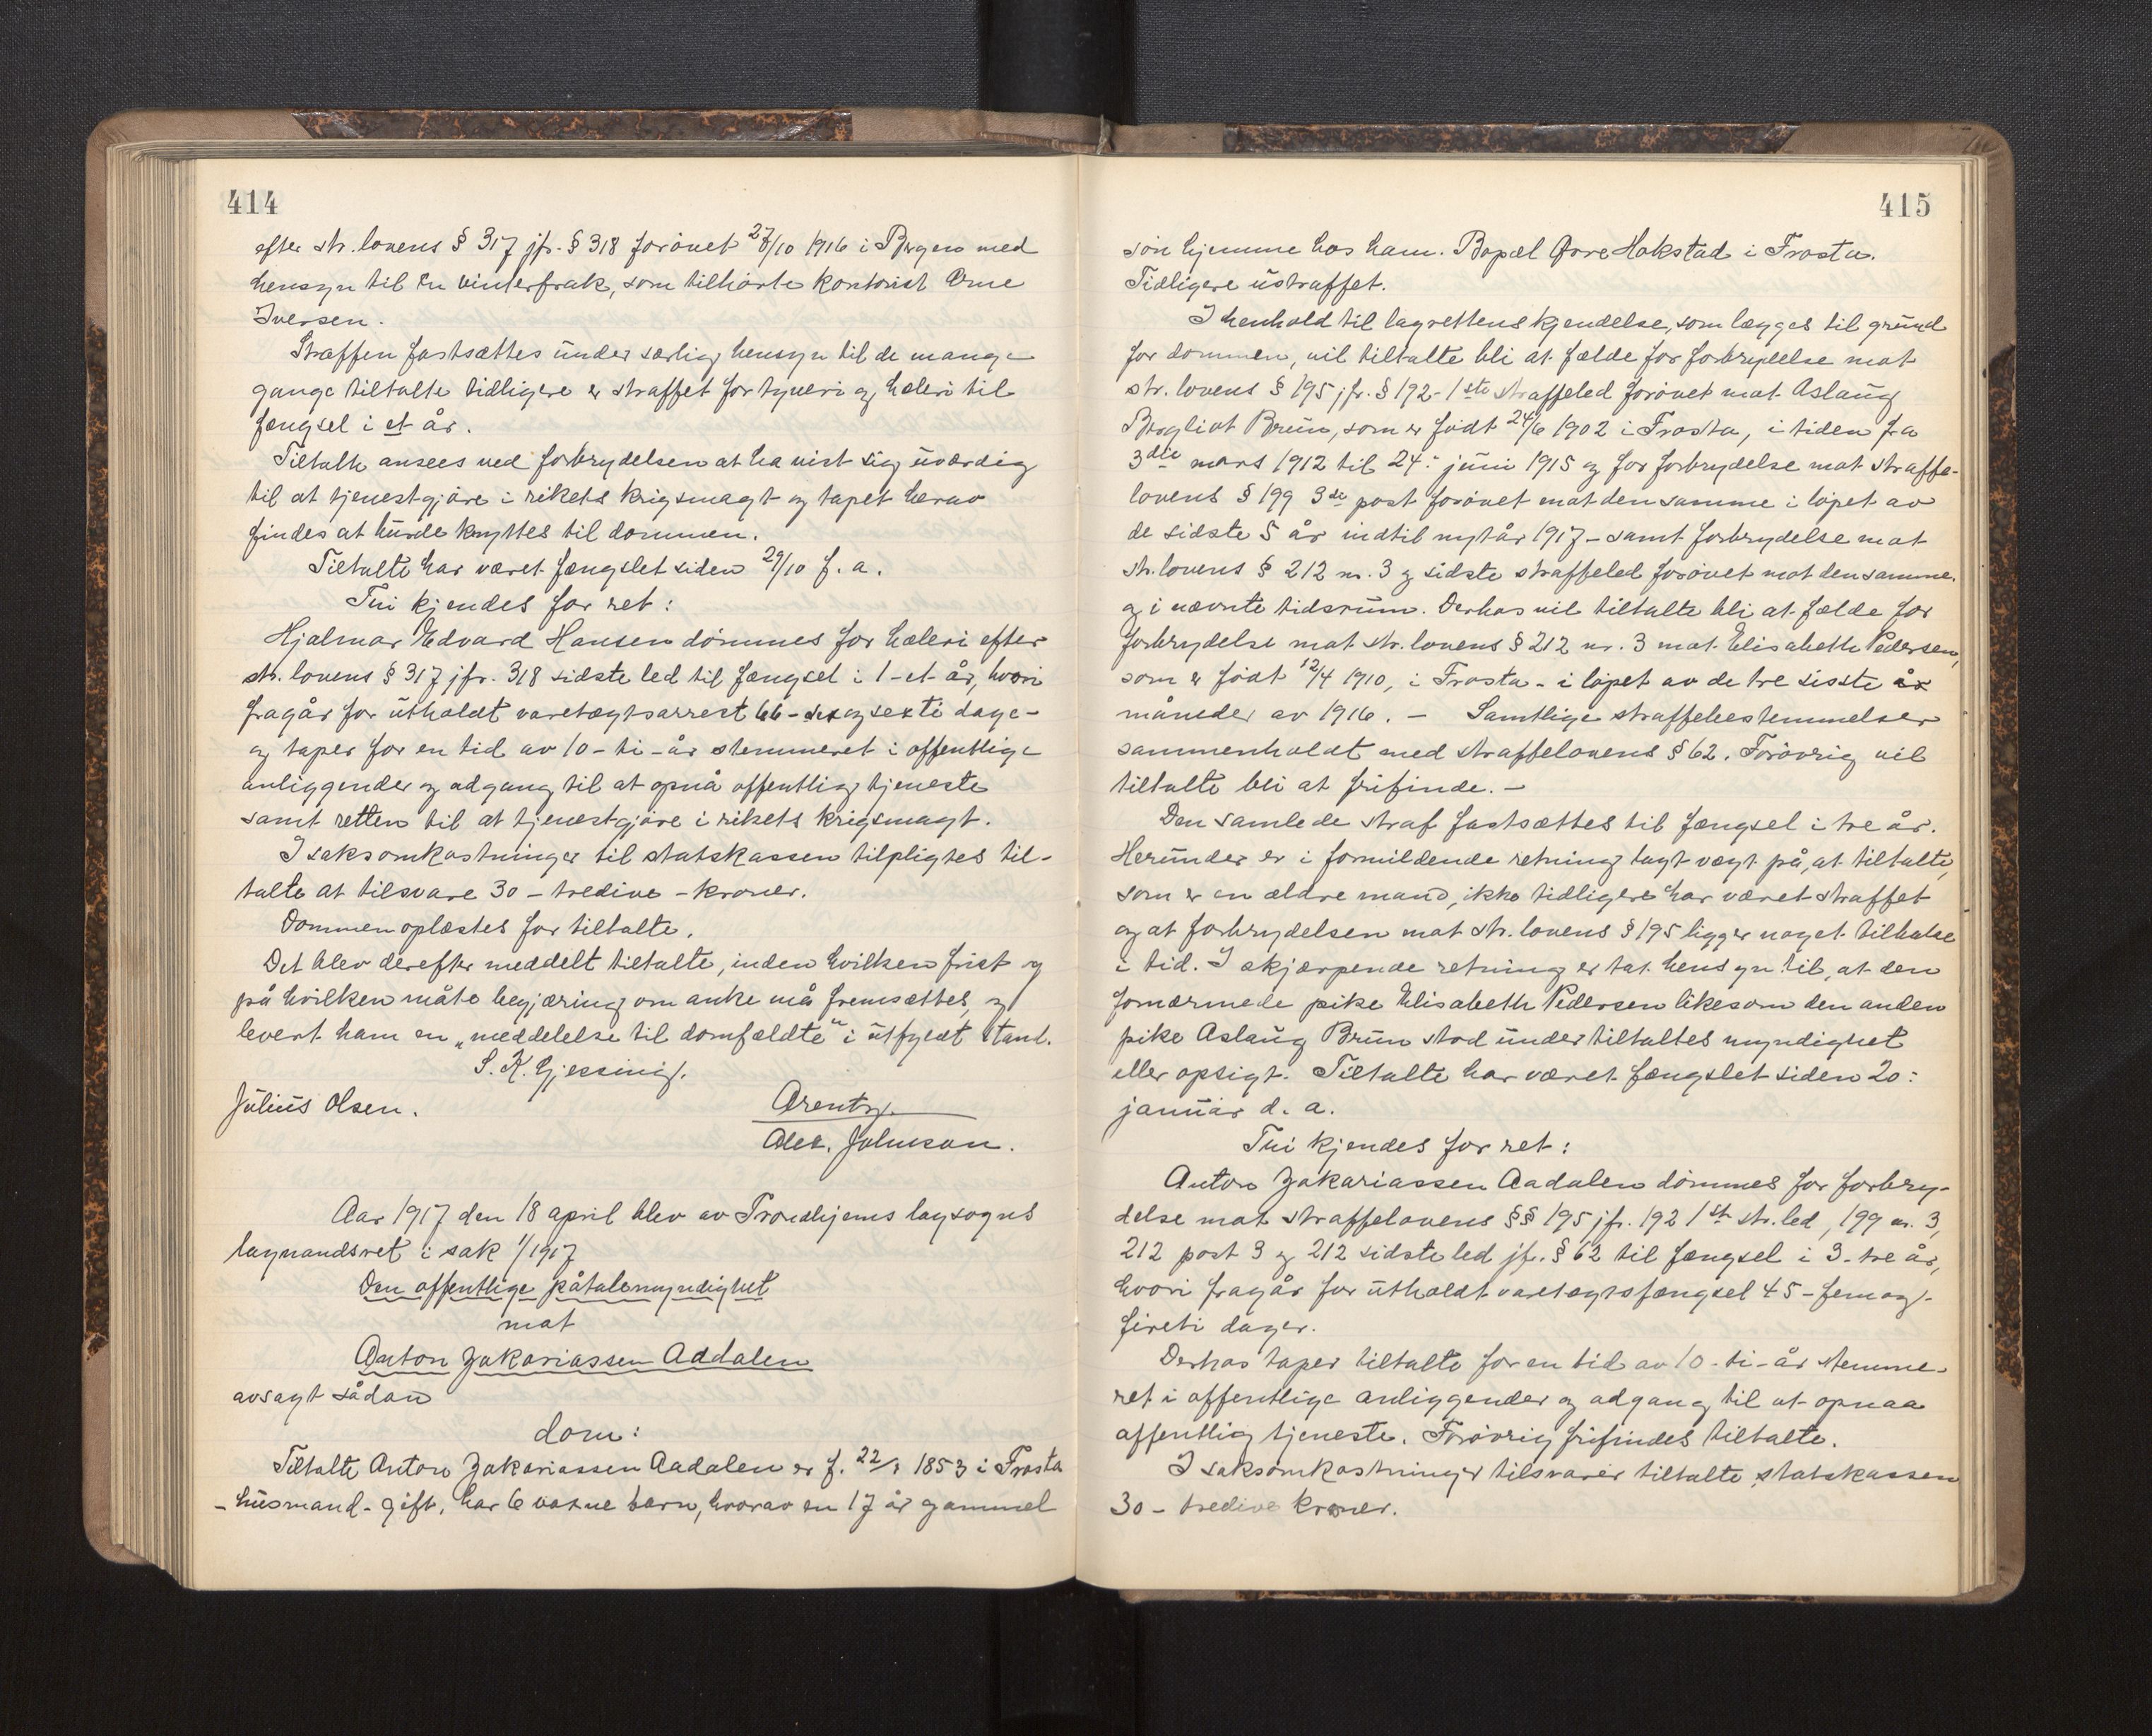 414
efter str. lovens § 317 jfr. § 318 forøvet 27/10 1916 i Bergen med
hensyn til en vinterfrak, som tilhørte kontorist Arne
Iversen.
Straffen fastsættes under særlig hensyn til de mange
gange tiltalte tidligere er straffet for tyveri og hæleri til
fængsel i et år.
Tiltalte ansees ved forbrydelsen at ha vist sig uværdig
til at tjenestgjöre i rikets krigsmagt og tapet herav
findes at burde knyttes til dommen.
Tiltalte har været fængslet siden 29/10 f. a.
Tui kjendes for ret:
Hjalmar Edvard Hansen dömmes for hæleri efter
str. lovens § 317 jfr. 318 sidste led til fængsel i 1 - et år, hvori
fragår for utholdt varetægtsarrest 66 - sex og sexti dage -
og taper for en tid av 10 - ti - år stemmeret i offentlige
anliggender og adgang til at opnå offentlig tjeneste
samt retten til at tjenestgjöre i rikets krigsmagt.
I saksomkostninger til statskassen tilpligtes til-
talte at tilsvare 30 - tredive - kroner.
Dommen oplæstes for tiltalte.
Det blev derefter meddelt tiltalte, inden hvilken frist og
på hvilken måte begjæring om anke må fremsættes, og
levert ham en „meddelelse til domfældte" i utfyldt stand.
S. K. Gjessing.
Julius Olsen.
Arentz.
Alex. Johnson.
Aar 1917 den 18 april blev av Trondhjems lagsogns
lagmandsret i sak 1/1917
Den offentlige påtalemyndighet
mot
Anton Zakariassen Aadalen
avsagt sådan
dom:
Tiltalte Anton Zakariassen Aadalen er f. 1853 i Frosta
- husmand - gift, har 6 voxne barn, hvorav en 17 år gammel
415
sön hjemme hos ham. Bopæl Övre Hokstad i Frosta.
Tidligere ustraffet.
I henhold til lagrettens kjendelse, som lægges til grund
for dommen, vil tiltalte bli at fælde for forbrydelse mot
str. lovens § 195 jfr. § 192 - 1ste straffeled forøvet mot Aslaug
Bergliot Brun, som er født 24/6 1902 i Frosta, i tiden fra
3die mars 1912 til 24: juni 1915 og for forbrydelse mot straffe-
lovens § 199 3de post forøvet mot den samme i löpet av
de sidste 5 år indtil nytår 1917 - samt forbrydelse mot
str. lovens § 212 nr. 3 og sidste straffeled forøvet mot den samme,
og i nævnte tidsrum. Derhos vil tiltalte bli at fælde for
forbrydelse mot str. lovens § 212 nr. 3 mot Elisabeth Pedersen,
som er født 12/4 1910, i Frosta - i löpet av de tre sisste år
måneder av 1916. - Samtlige straffebestemmelser
sammenholdt med straffelovens § 62. Forövrig vil
tiltalte bli at frifinde. -
Den samlede straf fastsættes til fængsel i tre år.
Herunder er i formildende retning lagt vægt på, at tiltalte,
som er en ældre mand, ikke tidligere har været straffet
og at forbrydelsen mot str. lovens § 195 ligger noget tilbake
i tid. I skjærpende retning er tat hensyn til, at den
fornærmede pike Elisabeth Pedersen likesom den anden
pike Aslaug Brun stod under tiltaltes myndighet
eller opsigt. Tiltalte har været fængslet siden 20:
januar d. a.
Tui kjendes for ret:
Anton Zakariassen Aadalen dömmes for forbry-
delse mot straffelovens §§ 195 jfr. 192 1ste str. led, 199 nr. 3,
212 post 3 og 212 sidste led jfr. § 62 til fængsel i 3 - tre år,
hvori fragår for utholdt varetægtsfængsel 45 - fem og -
fireti dager.
Derhos taper tiltalte for en tid av 10 - ti - år stemme-
ret i offentlige anliggender og adgang til at opnaa
offentlig tjeneste. Forövrig frifindes tiltalte.
I saksomkostninger tilsvarer tiltalte statskassen
30 - tredive kroner.